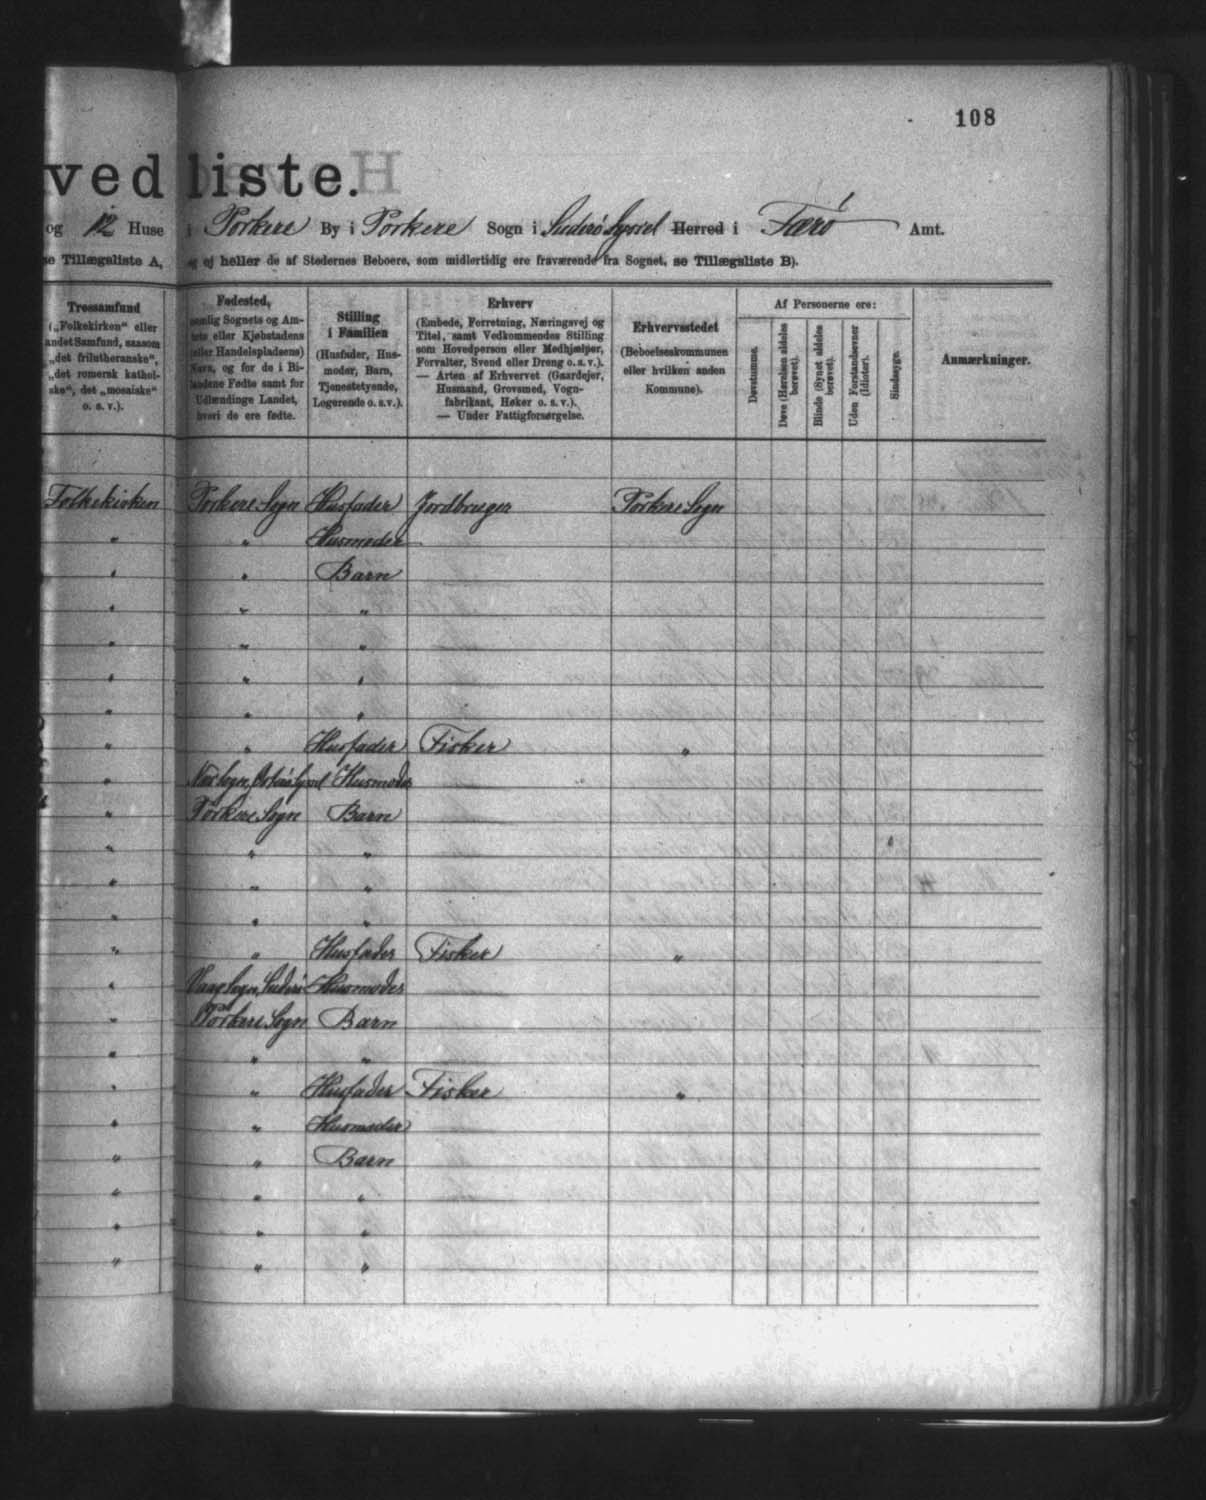 108
vedliste.
og 12 Huse i Porkere By i Porkere Sogn i Suderø Syssel Herred i Færø Amt.
se Tillægsliste A, og ej heller de af Stedernes Beboere, som midlertidig ere fraværende fra Sognet, se Tillægsliste B).
Trossamfund
(„Folkekirken“ eller
andet Samfund, saasom
„det frilutheranske“,
„det romersk kathol-
ske“, det „mosaiske“
o. s. v.).
Fødested,
nemlig Sognets og Am-
tets eller Kjøbstadens
(eller Handelspladsens)
Navn, og for de i Bi-
landene Fødte samt for
Udlændinge Landet,
hvori de ere fødte.
Stilling
i Familien
(Husfader, Hus-
moder, Barn,
Tjenestetyende,
Logerende o. s. v.).
Erhverv
(Embede, Forretning, Næringsvej og
Titel, samt Vedkommendes Stilling
som Hovedperson eller Medhjælper,
Forvalter, Svend eller Dreng o. s. v.).
— Arten af Erhvervet (Gaardejer,
Husmand, Grovsmed, Vogn-
fabrikant, Høker o. s. v.).
— Under Fattigforsørgelse.
Erhvervsstedet
(Beboelseskommunen
eller hvilken anden
Kommune).
Af Personerne ere:
Døvstumme.
Døve (Hørelsen aldeles
berøvet).
Blinde (Synet aldeles
berøvet).
Uden Forstandsevner
(Idioter).
Sindssyge.
Anmærkninger.
Folkekirken Porkere Sogn Husfader Jordbruger Porkere Sogn
" " Husmoder
" " Barn
" " "
" " "
" " "
" " "
" " Husfader Fisker "
" Næs Sogn, Østerø Syssel Husmoder
" Porkere Sogn Barn
" " "
" " "
" " "
" " Husfader Fisker "
" Vaag Sogn, Suderø Husmoder
" Porkere Sogn Barn
" " "
" " Husfader Fisker "
" " Husmoder
" " Barn
" " "
" " "
" " "